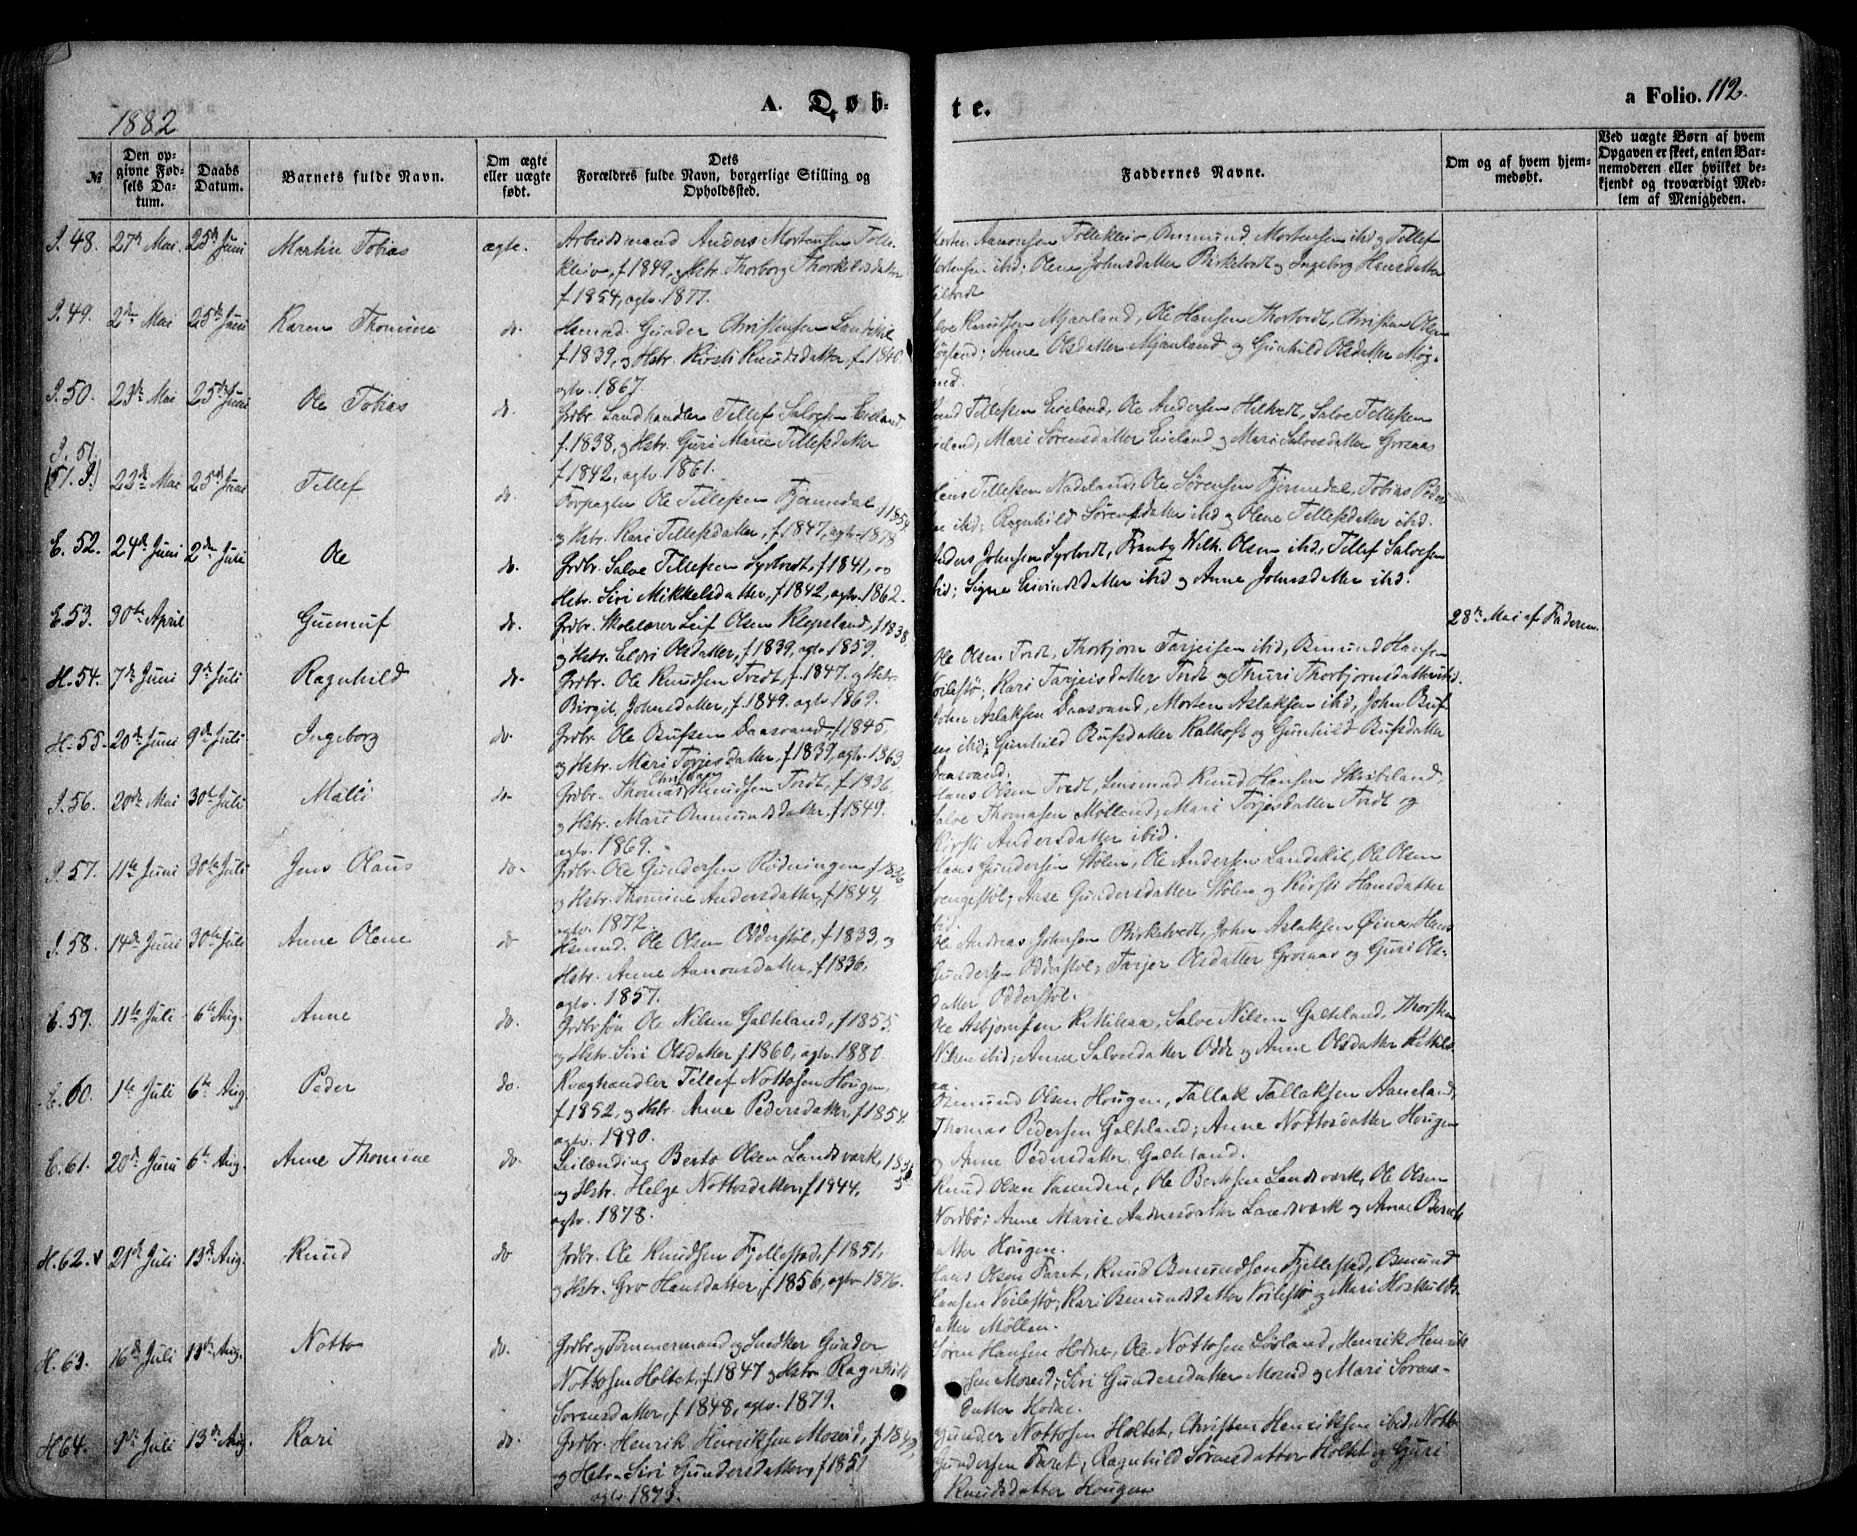 1882
A. Døbte.
a Folio. 112.
№
Den opgivne Fødsels Datum.
Daabs Datum.
Barnets fulde Navn.
Om ægte eller uægte født.
Dets Forældres fulde Navn, borgerlige Stilling og Opholdssted.
Faddernes Navne.
Om og af hvem hjemmedøbt.
Ved uægte Børn af hvem Opgaven er skeet, enten Barnemoderen eller hvilket bekjendt og troværdigt Medlem af Menigheden.
I. 48. 27de Mai 25de Juni Martin Tobias ægte. Arbeidsmand Anders Mortensen Tolle-
kleiv, f. 1849, og Hstr. Thorborg Thorkelsdatter
f. 1854, agtv. 1877.
Aanonsen Tollekleiv, Osmund Mortensen ibid og Tellef
Mortensen ibid; Olene Johnsdatter Birketvedt og Ingeborg Hansdatter
I. 49. 2den Mai 25de Juni Karen Thomine do. Gunder Christensen Landskil
f. 1839, og Hstr. Kirsti Knudsdatter f. 1840
agtv. 1867.
Knudsen Mjaaland, Ole Hansen Thortvedt, Christen Olsen
Anne Olsdatter Mjaaland og Gunhild Olsdatter
I. 50. 23de Mai 25de Juni Ole Tobias do. Grdbr. Landhandler Tellef Salvesen Eieland,
f. 1838, og Hstr. Guri Marie Tellefsdatter
f. 1842, agtv. 1861.
Tellefsen Eieland, Ole Andersen Hiltvedt, Salve Tellefsen
Eieland; Mari Sørensdatter Eieland og Mari Salvesdatter Grosaas
I. 51.
(51. I) 22de Mai 25de Juni Tellef do. Forpagter Ole Tellefsen Fjermedal f 1854
og Hstr. Kari Tellefsdatter, f. 1847, agtv. 1878
Jens Tellefsen Nadeland, Ole Sørensen Fjermedal, Tobias
ibid; Ragnhild Sørensdatter ibid og Olene Tellefsdatter ibid.
E. 52. 24de Juni 2den Juli Ole do. Grdbr. Salve Tellefsen Syrtvedt, f. 1841, og
Hstr. Siri Mikkelsdatter, f. 1842, agtv. 1862.
Anders Johnsen Syrtvedt, Wilh. Olsen ibid, Tellef Salvesen
ibid; Signe Eivindsdatter ibid og Anne Johnsdatter ibid.
E. 53. 30te April Gunnuf do. Grdbr. Skolelærer Leif Olsen Klepsland, f 1838
og Hstr. Eldri Olsdatter, f. 1839, agtv. 1859.
28de Mai af Faderen.
H. 54. 7de Juni 9de Juli Ragnhild do. Grdbr. Ole Knudsen Tvedt, f. 1847. og Hstr.
Birgit Johnsdatter, f. 1849. agtv. 1869.
Ole Olsen Tvedt, Thorbjørn Tarjeisen ibid, Osmund Hansen
Voilestø; Kari Tarjeisdatter Tvedt og Thuri Thorbjørnsdatter ibid.
H. 55. 20de Juni 9de Juli Ingeborg do. Grdbr. Ole Bufsen Daasvand, f 1845,
og Hstr. Mari Torjesdatter, f. 1839, agtv. 1863.
John Aslaksen Daasvand, Morten Aslaksen ibid, John Buf-
sen ibid; Gunhild Bufsdatter Kalhoft og Gunhild Bufsdatter
Daasvand.
I. 56. 20de Mai 30te Juli Malli do Grdbr. Thomas Christian Knudsen Tvedt, f. 1836
og Hstr. Mari Osmundsdatter, f. 1849.
agtv. 1869.
Hans Olsen Tvedt, Lensmand Knud Hansen Skribeland,
Salve Thomasen Mølland; Mari Torjesdatter Tvedt og
Kirsti Andersdatter ibid.
I. 57. 11te Juni 30te Juli Jens Olaus do. Grdbr. Ole Gundersen Rødningen, f. 1836
og Hstr. Thomine Andersdatter, f. 1844,
agtv. 1872.
Hans Gundersen Stølen, Ole Andersen Landskil, Ole Olsen
Aase Gundersdatter Stølen og Kirsti Hansdatter
ibid.
I. 58. 14de Juni 30te Juli Anne Olene do Ole Olsen Odderstøl, f. 1833, og
Hstr. Anne Aanonsdatter, f. 1836,
agtv. 1857.
Ole Andreas Johnsen Birketvedt, John Aslaksen Øina, Hans
Gundersen Odderstøl; Tarjer Olsdatter Grosaas og Guri Ols-
datter Odderstøl.
E. 59. 11te Juli 6te Aug. Anne do. Grdbrsøn Ole Nilsen Galteland, f. 1855.
og Hstr. Siri Olsdatter f. 1860, agtv. 1880.
Ole Asbjørnsen Kittilsaa, Salve Nilsen Galteland, Thorsten
Nilsen ibid; Anne Salvesdatter Odde og Anne Olsdatter Kittils-
aa.
E. 60. 1ste Juli 6te Aug Peder do. Kvæghandler Tellef Nottosen Hougen,
f. 1852, og Hstr. Anne Pedersdatter, f 1854
agtv. 1880.
Osmund Olsen Hougen, Tallak Tallaksen Aaneland,
Thomas Pedersen Galteland; Anne Nottosdatter Hougen
og Anne Pedersdatter Galteland.
E. 61. 20de Juni 6te Aug. Anne Thomine do. Leilænding Berto Olsen Landsværk,
og Hstr. Helge Nottosdatter, f 1844,
agtv. 1878.
Knud Olsen Ole Bertosen Landsværk, Ole Olsen
Nordbø; Anne Marie Andersdatter Landsværk og Anne
datter Hougen.
H. 62. v 21de Juli 13de Aug. Knud do Grdbr. Ole Knudsen Fjellestad, f 1851,
og Hstr. Gro Hansdatter, f. 1856, agtv 1876.
Hans Olsen Faret, Knud Osmundsen Fjellestad, Osmund
Hansen Voilestø; Kari Osmundsdatter Voilestø og Mari Hoskulds-
datter Møllen.
H. 63. 16de Juli 13de Aug. Notto do. Grdbr og Tømmermand og Snedker Gunder
Nottosen Holtet, f 1847 og Hstr Ragnhild
Sørensdatter, f 1848, agtv. 1879.
Søren Hansen Hodne, Ole Nottosen Løsland, Henrik Henrik-
sen Moseid; Siri Gundersdatter Moseid og Mari Sørens-
datter Hodne.
H 64. 9de Juli 13de Aug. Kari do. Grdbr. Henrik Henriksen Moseid,
og Hstr Siri Gundersdatter, f 1851
agtv. 1873.
Gunder Nottosen Holtet, Christen Henriksen ibid, Notto
Gundersen Faret; Ragnhild Sørensdatter Holtet og Guri
Knudsdatter Hougen